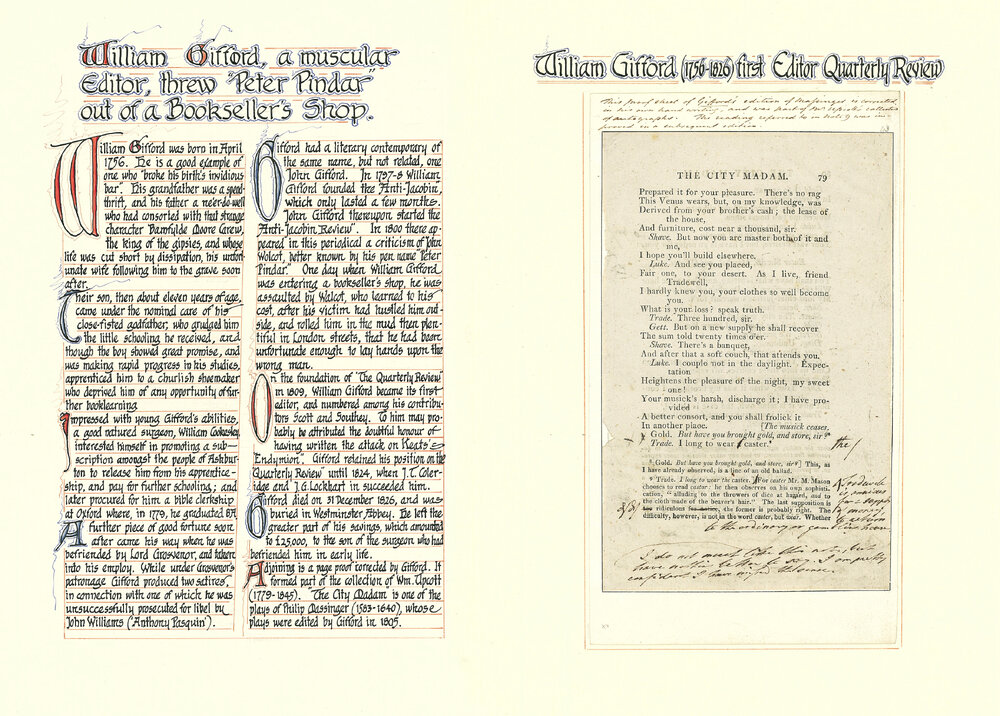 William Gifford, a muscular
Editor, threw "Peter Pindar"
out of a Bookseller's Shop.
William Gifford was born in April
1756. He is a good example of
one who "broke his birth's invidious
bar". His grandfather was a spend-
thrift, and his father a ne'er-do-well
who had consorted with that strange
character Bamfylde Moore Carew,
the king of the gipsies, and whose
life was cut short by dissipation, his unfort-
unate wife following him to the grave soon
after.
Their son, then about eleven years of age,
came under the nominal care of his
close-fisted godfather, who grudged him
the little schooling he received, and
though the boy showed great promise, and
was making rapid progress in his studies,
apprenticed him to a churlish shoemaker
who deprived him of any opportunity of fur-
ther booklearning
Impressed with young Gifford's abilities,
a good natured surgeon, William Cookesley,
interested himself in promoting a sub-
scription amongst the people of Ashbur-
ton to release him from his apprentice-
ship, and pay for further schooling; and
later procured him a bible clerkship
at Oxford where, in 1779, he graduated BA
A further piece of good fortune soon
after came his way when he was
befriended by Lord Grosvenor, and taken
into his employ. While under Grosvenor's
patronage Gifford produced two satires,
in connection with one of which he was
unsuccessfully prosecuted for libel by
John Williams ("Anthony Pasquin").
Gifford had a literary contemporary of
the same name, but not related, one
John Gifford. In 1797-8 William
Gifford founded the "Anti-Jacobin",
which only lasted a few months.
John Gifford thereupon started the
"Anti-Jacobin Review". In 1800 there ap-
peared in this periodical a criticism of John
Wolcot, better known by his pen name "Peter
Pindar." One day when William Gifford
was entering a bookseller's shop, he was
assaulted by Wolcot, who learned to his
cost, after his victim had hustled him out-
side, and rolled him in the mud then plen-
tiful in London streets, that he had been
unfortunate enough to lay hands upon the
wrong man.
On the foundation of "The Quarterly Review"
in 1809, William Gifford became its first
editor, and numbered among his contribu-
tors Scott and Southey. To him may pro-
bably be attributed the doubtful honour of
having written the attack on Keats'
"Endymion". Gifford retained his position on the
"Quarterly Review" until 1824, when J. T. Cole-
ridge and J. G. Lockhart in succeeded him.
Gifford died on 31 December 1826, and was
buried in Westminster Abbey. He left the
greater part of his savings, which amounted
to £25,000, to the son of the surgeon who had
befriended him in early life.
Adjoining is a page proof corrected by Gifford. It
formed part of the collection of Wm. Upcott
(1779-1845). The City Madam is one of the
plays of Philip Massinger (1583-1640), whose
plays were edited by Gifford in 1805.
William Gifford (1756-1826) first Editor Quarterly Review
This proof sheet of Gifford's edition of Massinger is corrected
in his own hand writing and was part of Mr Upcott's collection
of autographs. The reading referred to in Note 9 was im-
proved in a subsequent edition.
THE CITY MADAM. 79
Prepared it for your pleasure. There's no rag
This Venus wears, but, on my knowledge, was
Derived from your brother's cash; the lease of
the house,
And furniture, cost near a thousand, sir.
Shave. But now you are master both of it and
me,
I hope you'll build elsewhere.
Luke. And see you placed,
Fair one, to your desert. As I live, friend
Tradewell,
I hardly knew you, your clothes so well become
you.
What is your loss? speak truth.
Trade. Three hundred, sir.
Gett. But on a new supply he shall recover
The sum told twenty times o'er.
Shave. There's a banquet,
And after that a soft couch, that attends you.
Luke. I couple not in the daylight. Expec-
tation
Heightens the pleasure of the night, my sweet
one!
Your musick's harsh, discharge it; I have pro-
vided
A better consort, and you shall frolick it
In another place. [The musick ceases.
Gold. But have you brought gold, and store, sir?⁸
Trade. I long to wear caster.⁹ the
⁸ Gold. But have you brought gold, and store, sir?] This, as
I have already observed, is a line of an old ballad.
⁹ Trade. I long to wear the caster.] For caster Mr. M. Mason
chooses to read castor: he then observes on his own sophisti-
cation, "alluding to the throwers of dice at hazard, and to
the cloth made of the beaver's hair." The last supposition is
too ridiculous for notice, the former is probably right. The
difficulty, however, is not in the word caster, but wear. Whether
I do not much like this note, but
have nothing better to say. I am pretty
confident I have mistaken the sense.